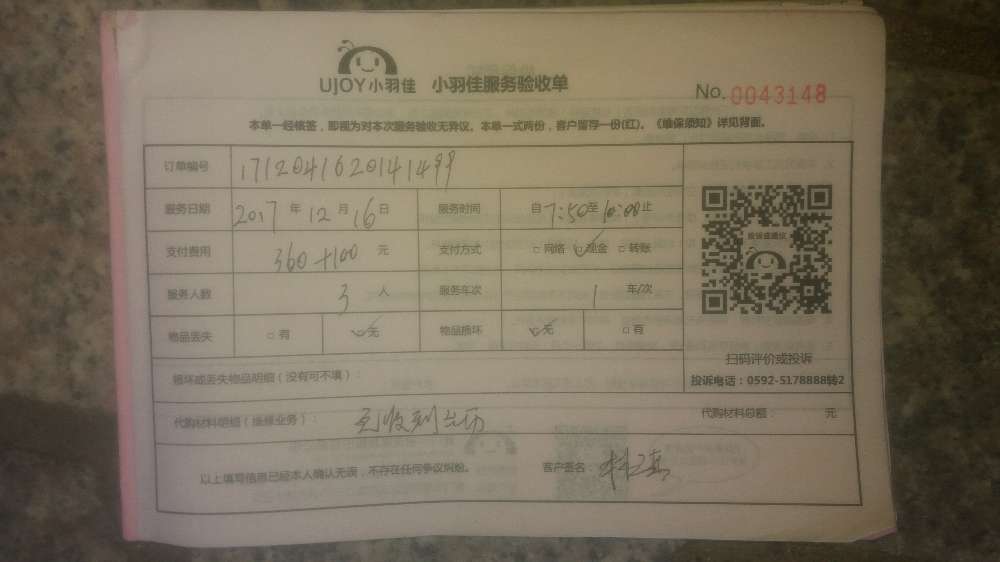 UJOY小羽佳 小羽佳服务验收单 No. 0043148
本单一经核签，即视为对本次服务验收无异议。本单一式两份，客户留存一份(红)。《维保须知》详见背面。
订单编号 1712041620141499
服务日期 2017 年 12 月 16 日 服务时间 自 7:50 至 10:00 止
支付费用 360+100 元 支付方式 □网络 ☑现金 □转账
服务人数 3 人 服务车次 1 车/次
物品丢失 □有 ☑无 物品损坏 ☑无 □有
投诉或建议
扫码评价或投诉
投诉电话：0592-5178888转2
损坏或丢失物品明细（没有可不填）：
代购材料明细（维修业务）： 代购材料总额： 元
以上填写信息已经本人确认无误，不存在任何争议纠纷。 客户签名：